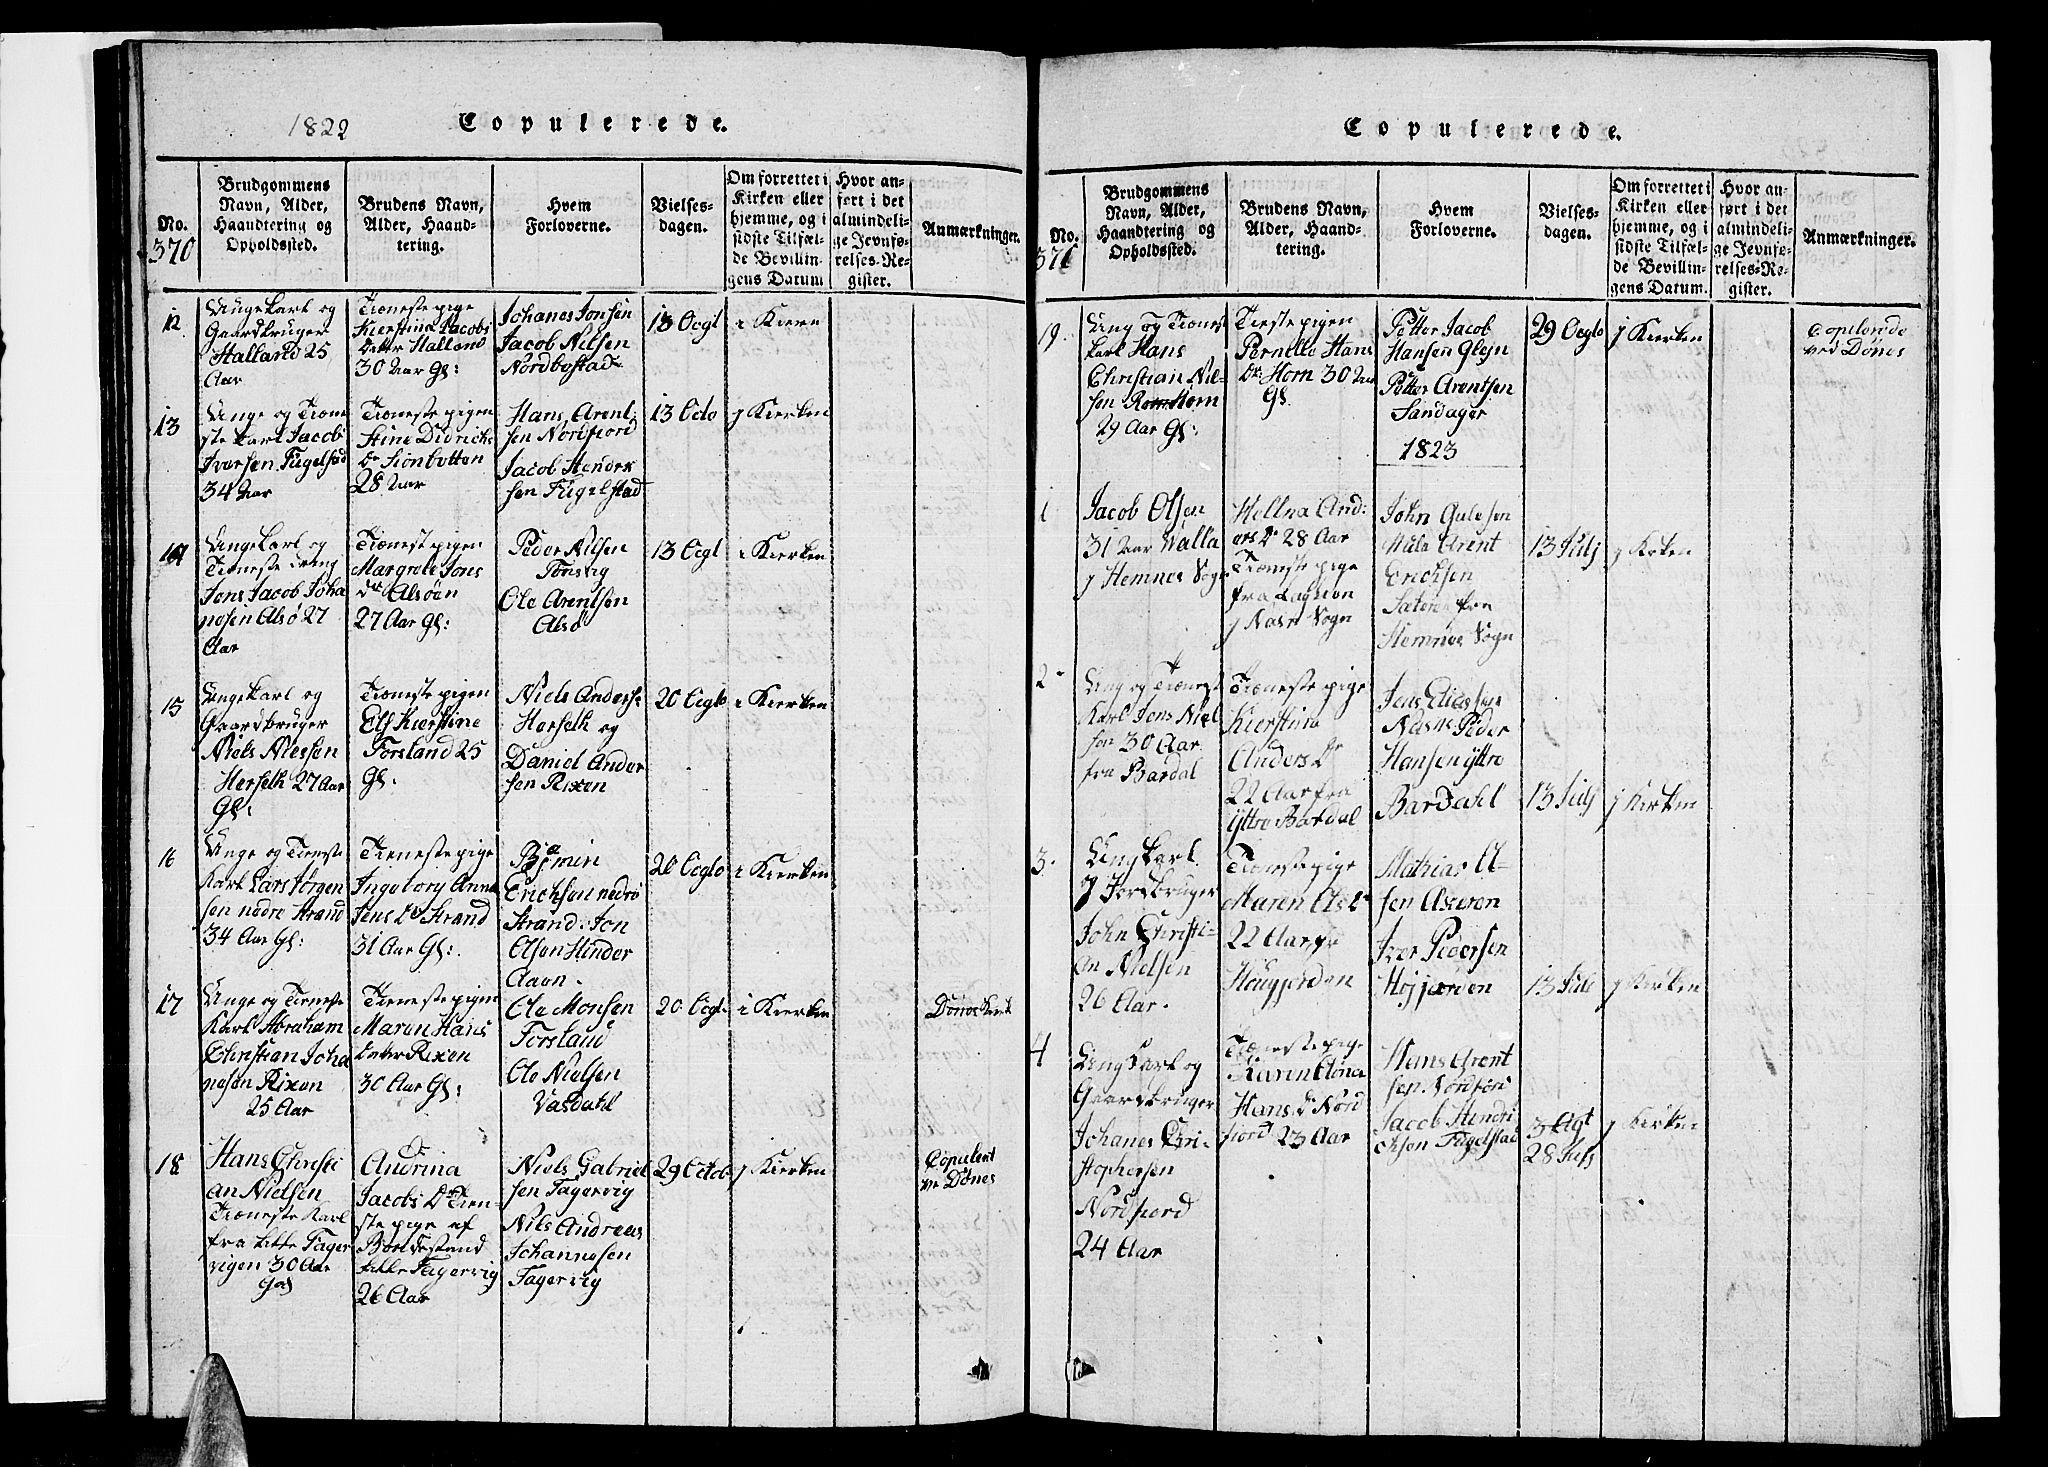 1822
Copulerede.
No.
370
Brudgommens
Navn, Alder,
Haandtering og
Opholdssted.
Brudens Navn,
Alder, Haand-
tering.
Hvem
Forloverne.
Vielses-
dagen.
Om forrettet i
Kirken eller
hjemme, og i
sidste Tilfæl-
de Bevillin-
gens Datum
Hvor an-
ført i det
almindeli-
ge Jevnfø-
relses-Re-
gister.
Anmærkninger.
12
Ungekarl og
Gaardbruger
Halland 25
Aar
Tieneste pige
Kierstina Jacobs
datter Halland
30 Aar Gl:
Johanes Jonsen
Jacob Nilsen
Nordbostad
13
i
13
Unge og Tiene
ste karl Jacob
Iversen Fugelstad
34 Aar
Tieneste pigen
Stine Didrichs
Dr
28 Aar
Hans Arent
sen Nordfiord
Jacob Hendrek
sen Fugelstad
13 Octo
j Kierken
14
Ungekarl og
Tieneste dreng
Jons Jacob Joha
nesen Alsø 27
Aar
Tieneste pigen
Margrete Jons
dr Alsøen
27 Aar Gl:
Peder Nilsen
Ole Arentsen
Alsø
13
i Kierken
15
Ungekarl og
Gaardbruger
Niels Nielsen
Herfelk 27 Aar
Gl:
Tieneste pigen
Els Kierstine
Forsland 25
Gl:
Niels Anders
Herfelk og
Daniel Ander
sen Rixen
20
i Kierken
16
Unge og Tieneste
Karl Lars Jørgen
sen nedre Strand
34 Aar Gl:
Tieneste pige
Ingeborg Anna
Jens Dr Strand
31 Aar Gl:
Erichsen nedre
Strand: Jon
Olsen Hinder
Aaen
20
i Kierken
17
Unge og Tieneste
Karl Abraham
Christian Joha
nesen Rixen
25 Aar
Tieneste pigen
Maren Hans
datter Rixen
30 Aar Gl:
Ole Monsen
Forsland
Ole Nielsen
Vasdahl
20
i Kierken
18
Hans Christi
an Nielsen
Tieneste Karl
fra Litle Fager
vigen 30 Aar
Gal
Andrina
Jacobs Dr Tien
ste pige af
litle Fagervig
26 Aar
Niels Gabriel
sen Fagervig
Nils Andreas
Johannesen
Fagervig
29 Octob
j Kierken
Copulent
ve Dönes
Copulerede.
No.
371
Brudgommens
Navn, Alder,
Haandtering og
Opholdssted.
Brudens Navn,
Alder, Haand-
tering.
Hvem
Forloverne.
Vielses-
dagen.
Om forrettet i
Kirken eller
hjemme, og i
sidste Tilfæl-
de Bevillin-
gens Datum.
Hvor an-
ført i det
almindeli-
ge Jevnfø-
relses-Re-
gister.
Anmærkninger.
19.
Ung og Tienes
karl Hans
Christian Nil-
sen Horn
29 Aar Gl:
Pernelle Hans
Dr Horn 30 Aar
Gl.
Petter Jacob
Hansen Glejn
Petter Arentsen
Sandager
29
j Kierken
ved Dönes
1823
1
Jacob Olsen
31 Aar Valla
j Hemnes Sogn
Hellna And:
ers Dr 28 Aar
Tieneste pige
fra
j Næsn Sogn
John
Arent
Erichsen
fra
Hemnes Sogn
13 Julj
j Kirken
2
Ung og Tieneste
Karl Jens Niel
sen 30 Aar
fra Bardal
Tieneste pige
Kierstina
Anders Dr
22 Aar fra
Yttre Bardal
Jens Eliassen
Peder
Hansen yttre
Bardahl
13 Julj
j Kirken
3.
Ung karl
og Jordbruger
John Christi-
an Nielsen
26 Aar.
Tieneste pige
Maren
22 Aar fr
Höugjorden
Mathias
Iver Pedersen
Højjorden
13 Jule
j Kirken
4
Ung Karl og
Gaardbruger
Johanes Chri-
stophersen
Nordfiord
24 Aar
Tieneste pige
Karen Elena
Hans Dr Nord
fiord 23 Aar
Hans Arent
sen Nordfiord
Jacob Hendri
chsen Fugelstad
3 Agt
28 Julj
j Kirken